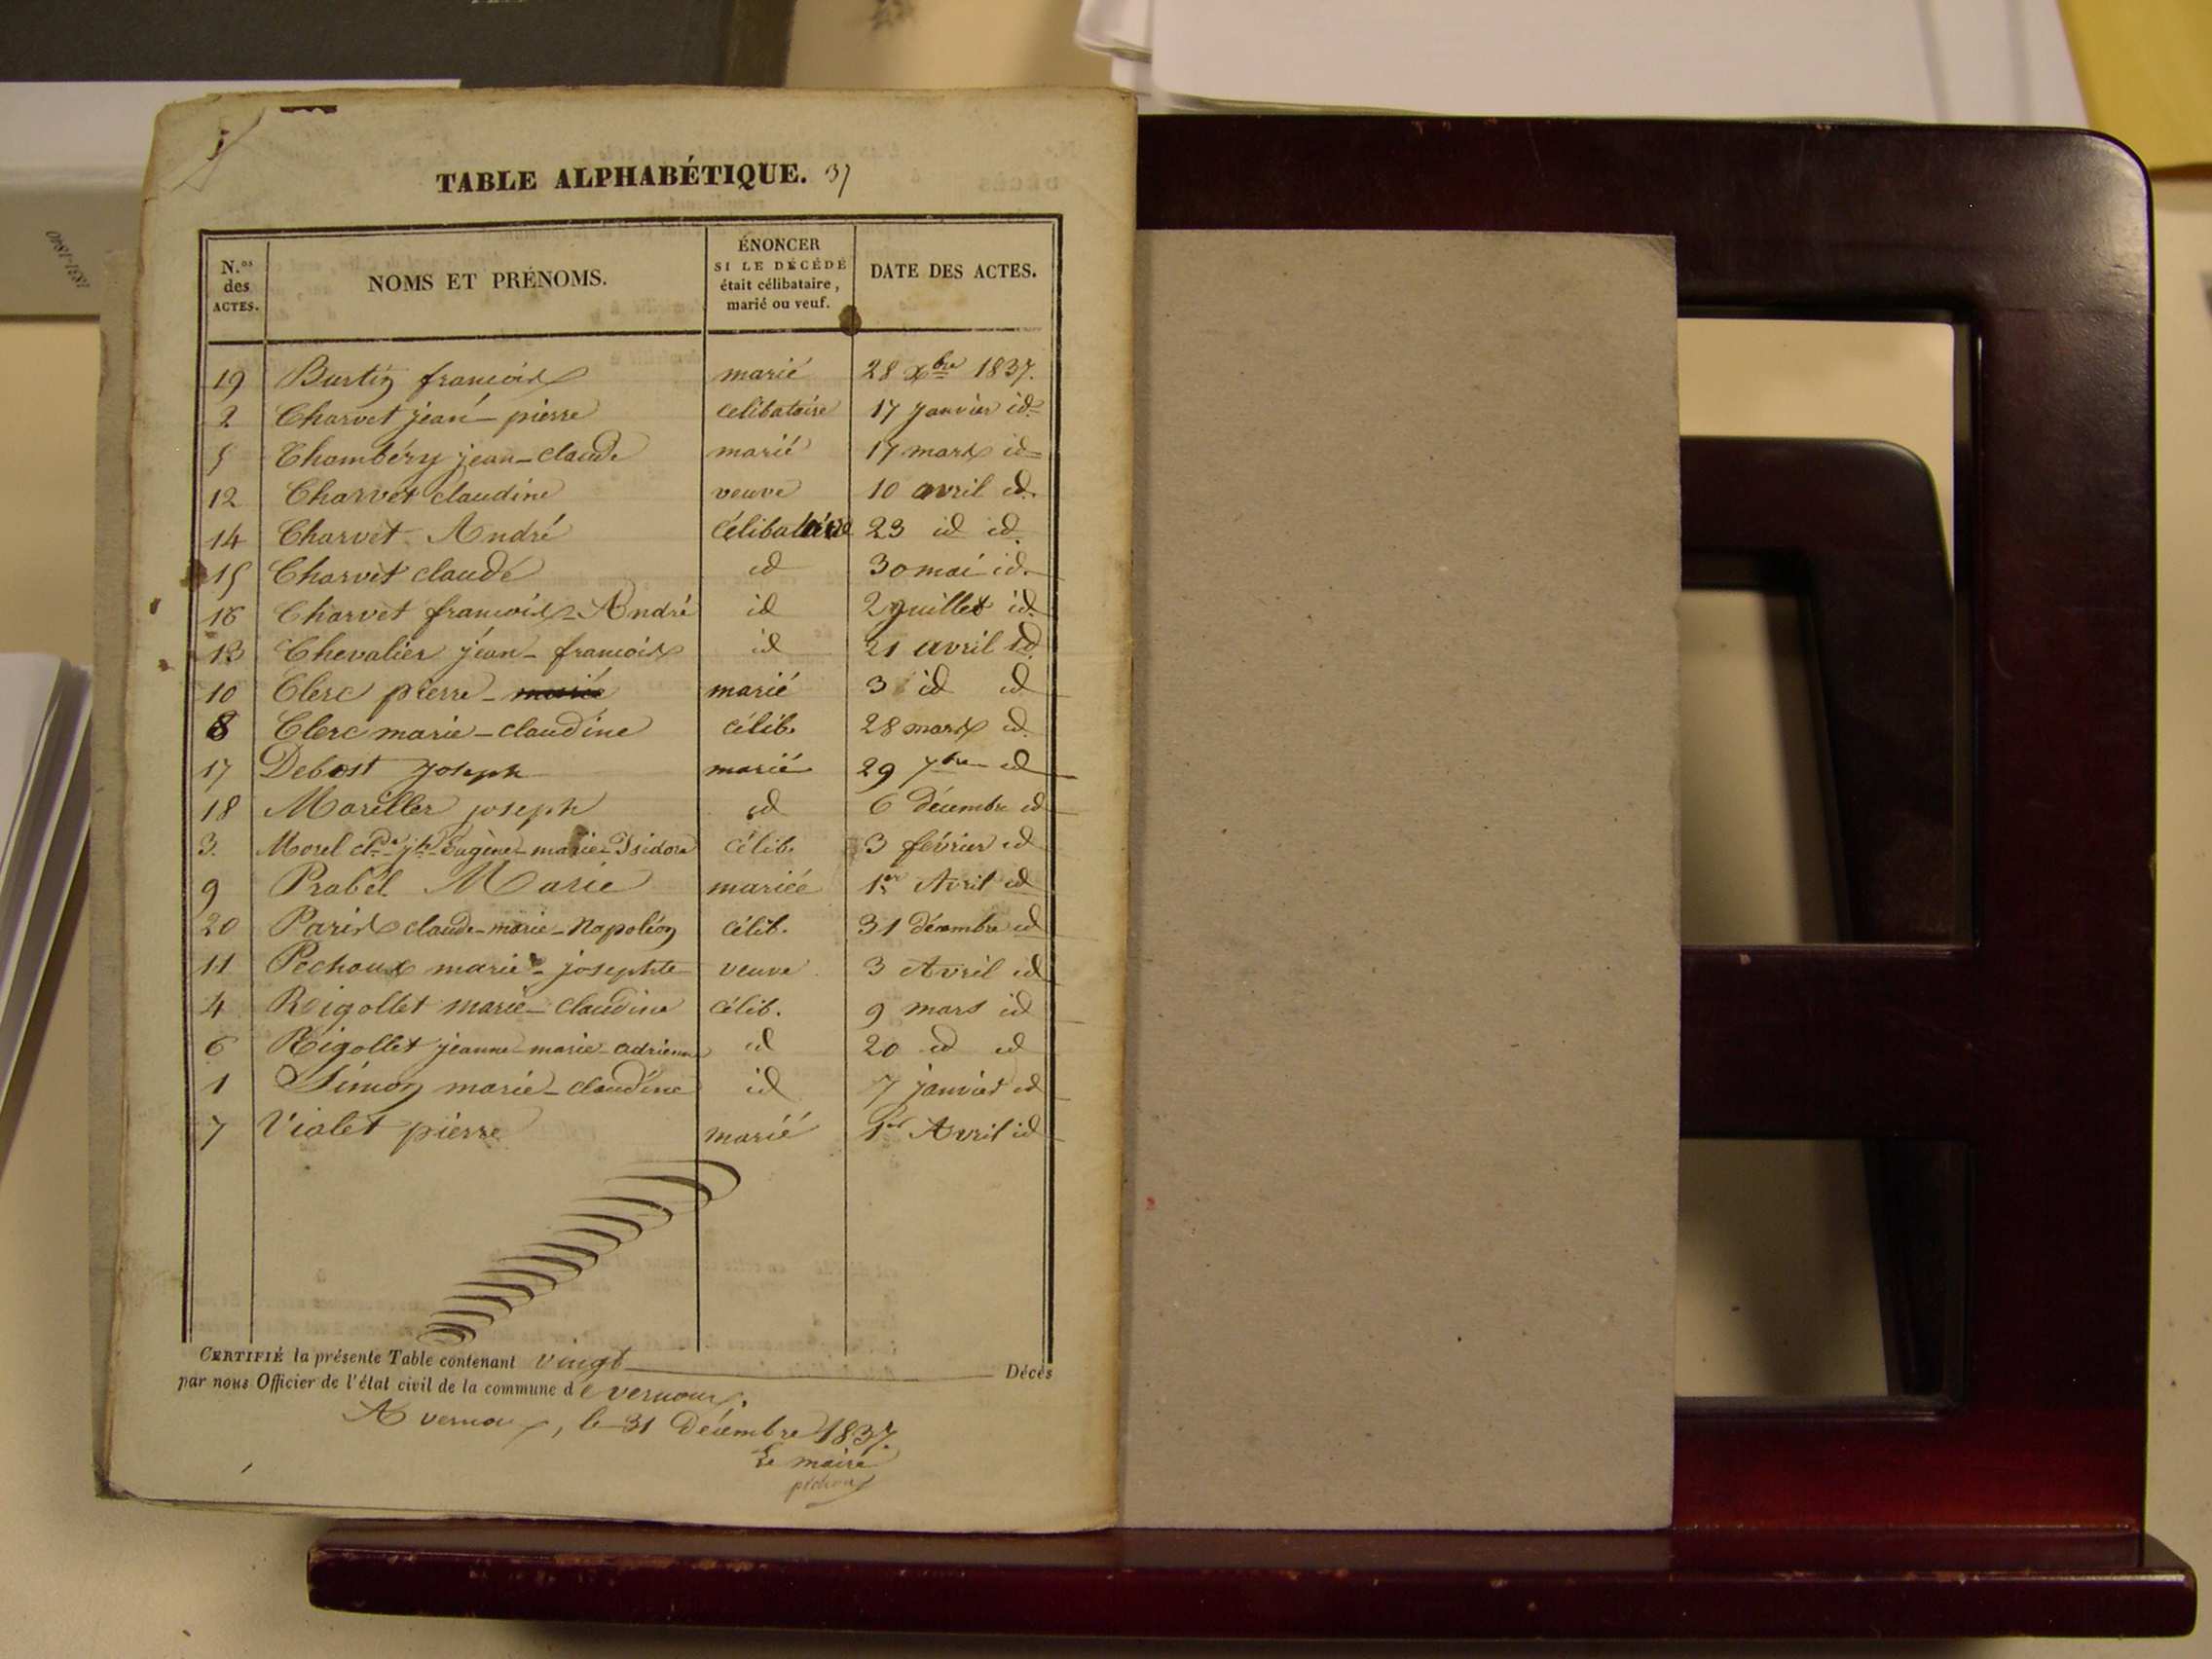 TABLE ALPHABÉTIQUE. 37
N.os des ACTES.
NOMS ET PRÉNOMS.
ÉNONCER SI LE DÉCÉDÉ était célibataire, marié ou veuf.
DATE DES ACTES.
19 Burtin françois marié 28 Xbre 1837.
2 Charvet jean-pierre celibataire 17 janvier id.
5 Chambéry jean-claude marié 17 mars id
12 Charvet claudine veuve 10 avril id.
14 Charvet André célibataire 23 id id.
15 Charvet claude id 30 mai id.
16 Charvet françois-André id 2 juillet id.
13 Chevalier jean-françois id 21 avril id.
10 Clerc pierre - marié 3 id id
8 Clerc marie-claudine célib. 28 mars id.
17 Debost joseph marié 29 7bre id
18 Mareiller joseph id 6 décembre id
3. Morel cl.de jh Eugène-marie-Isidore célib. 3 février id
9 Prabel Marie mariée 1er Avril id
20 Paris claude-marie-Napoléon célib. 31 décembre id
11 Pechoux marie-josephte veuve 3 Avril id
4 Rigollet marie-claudine célib. 9 mars id
6 Rigollet jeanne-marie-adrienne id 20 id id
1 Simon marie-claudine id 7 janvier id
7 Violet pierre marié 1er Avril id
CERTIFIÉ la présente Table contenant vingt Décès
par nous Officier de l'état civil de la commune de vernoux.
A vernoux, le 31 Décembre 1837.
Le maire
pechoux
1831-1840